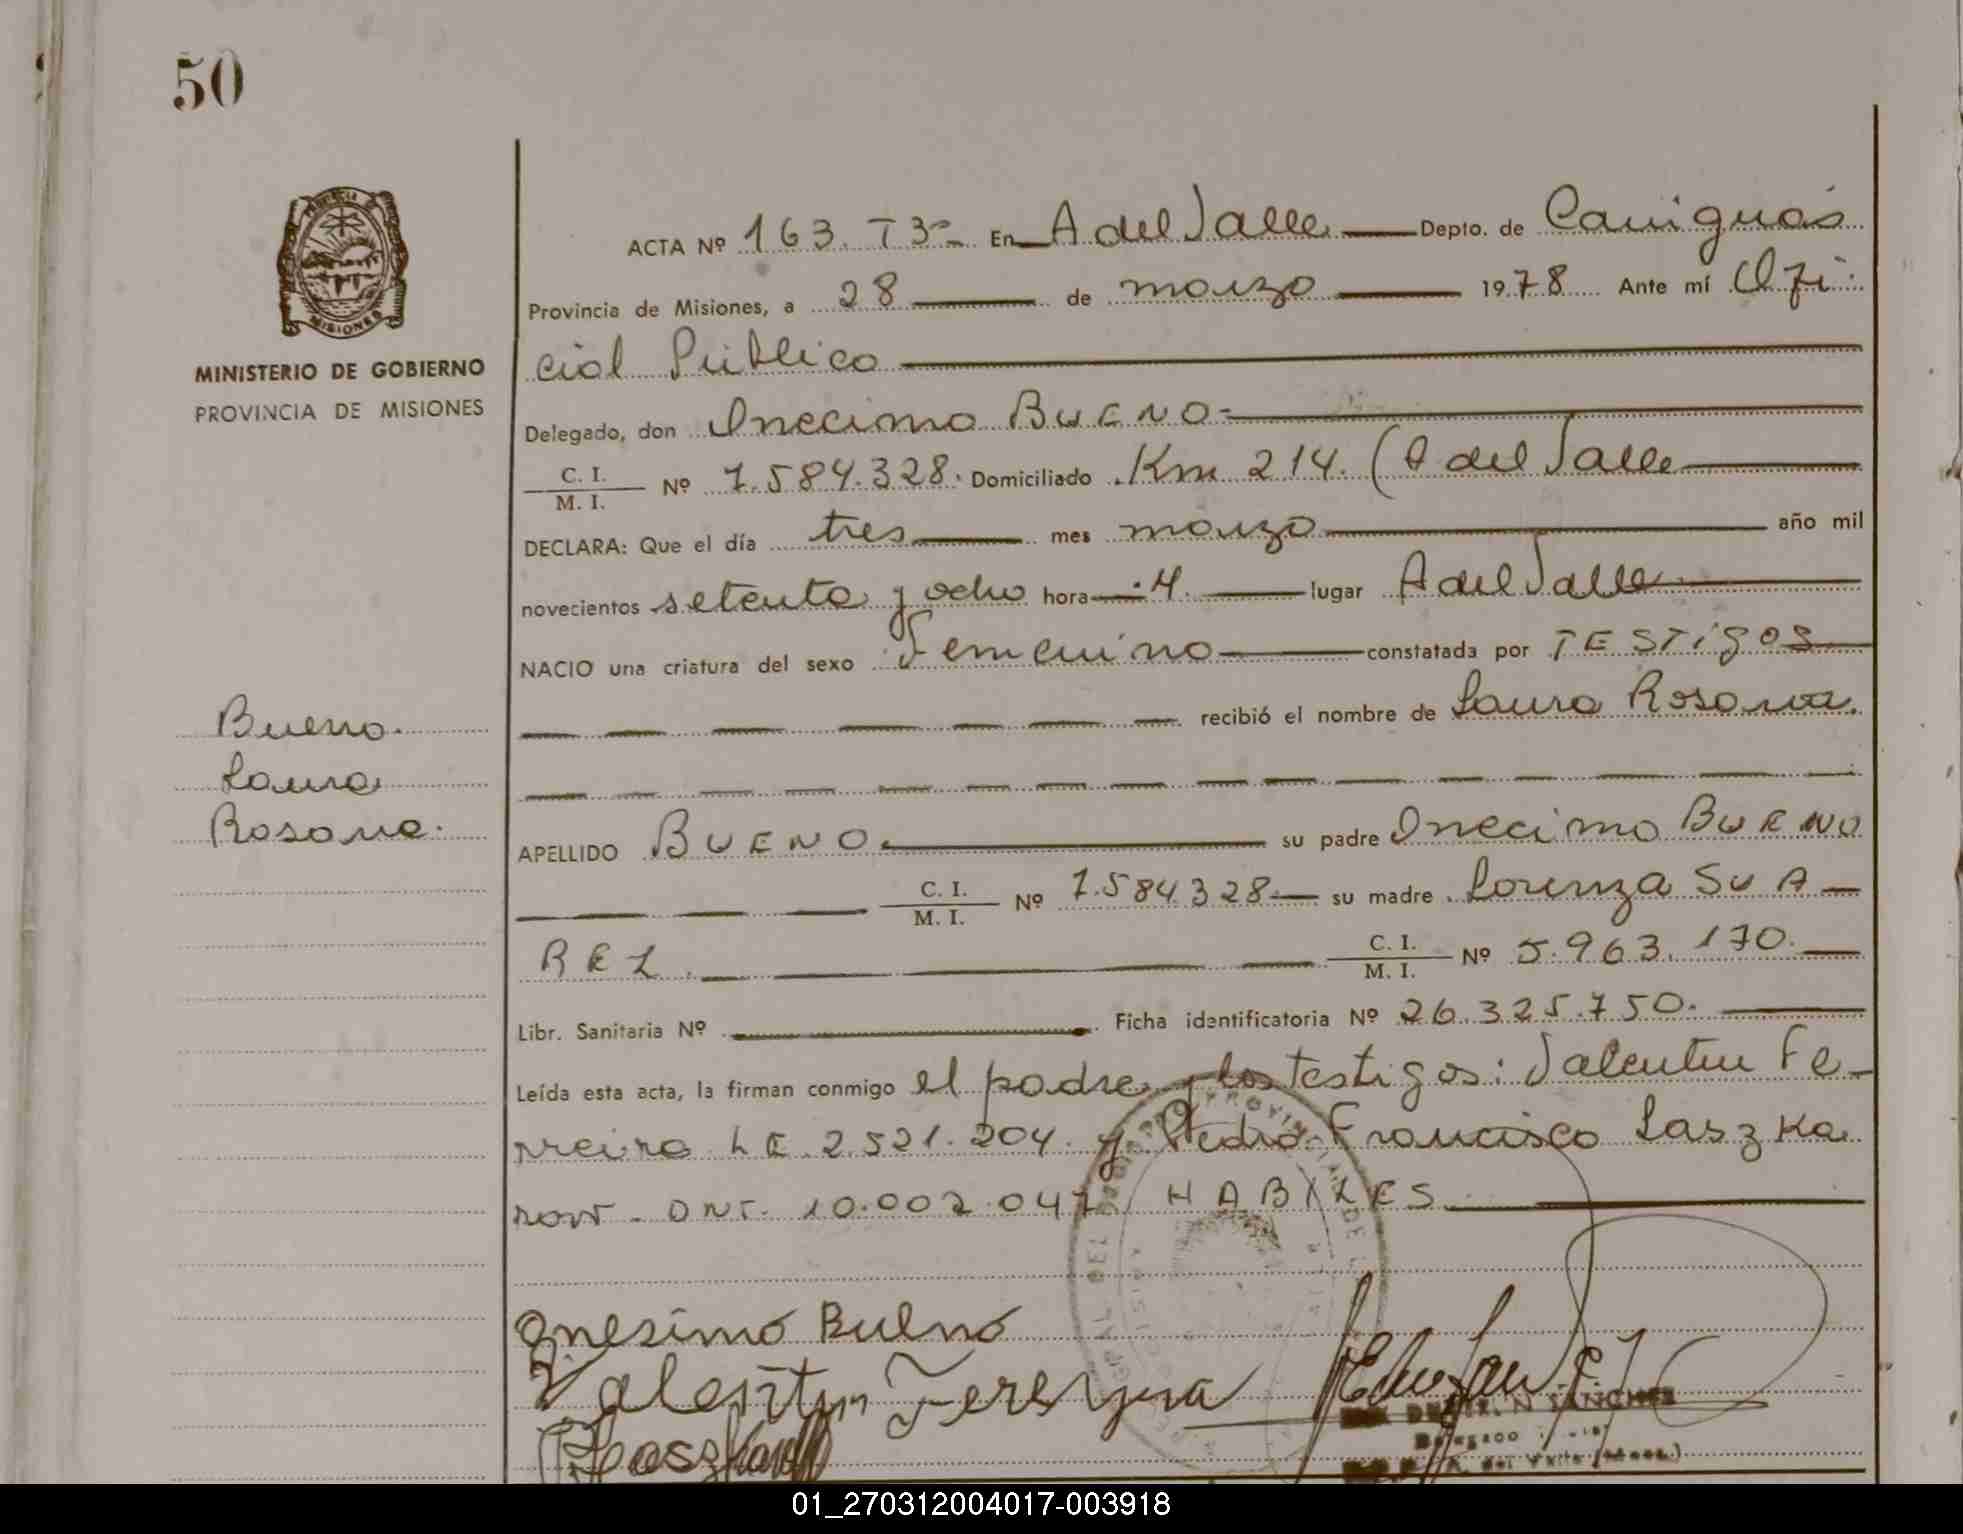 50
PROVINCIA DE
MISIONES
MINISTERIO DE GOBIERNO
PROVINCIA DE MISIONES
ACTA Nº 163. T3º En A del Valle Depto. de Cainguás
Provincia de Misiones, a 28 de marzo 1978 Ante mí Ofi
cial Público
Delegado, don Onecimo BUENO
C. I.
M. I. Nº 7.584.328. Domiciliado Km 214. (A del Valle
DECLARA: Que el día tres mes marzo año mil
novecientos setenta y ocho hora 4. lugar A del Valle
NACIO una criatura del sexo Femenino constatada por TESTigos
recibió el nombre de Laura Rosana.
Bueno.
Laura
Rosana.
APELLIDO BUENO su padre Onecimo BUENO
C. I.
M. I. Nº 7.584.328 su madre Lorenza SUA
REZ. C. I.
M. I. Nº 5.963.170.
Libr. Sanitaria Nº Ficha identificatoria Nº 26.325.750.
Leída esta acta, la firman conmigo el padre y los testigos: Valentin Fe-
rreira LE 2.521.204. y Pedro Francisco Laszka
now - DNI. 10.002.047 HABILES
onesimo Bueno
Valentin Fereyra
N SANCHEZ
01_270312004017-003918